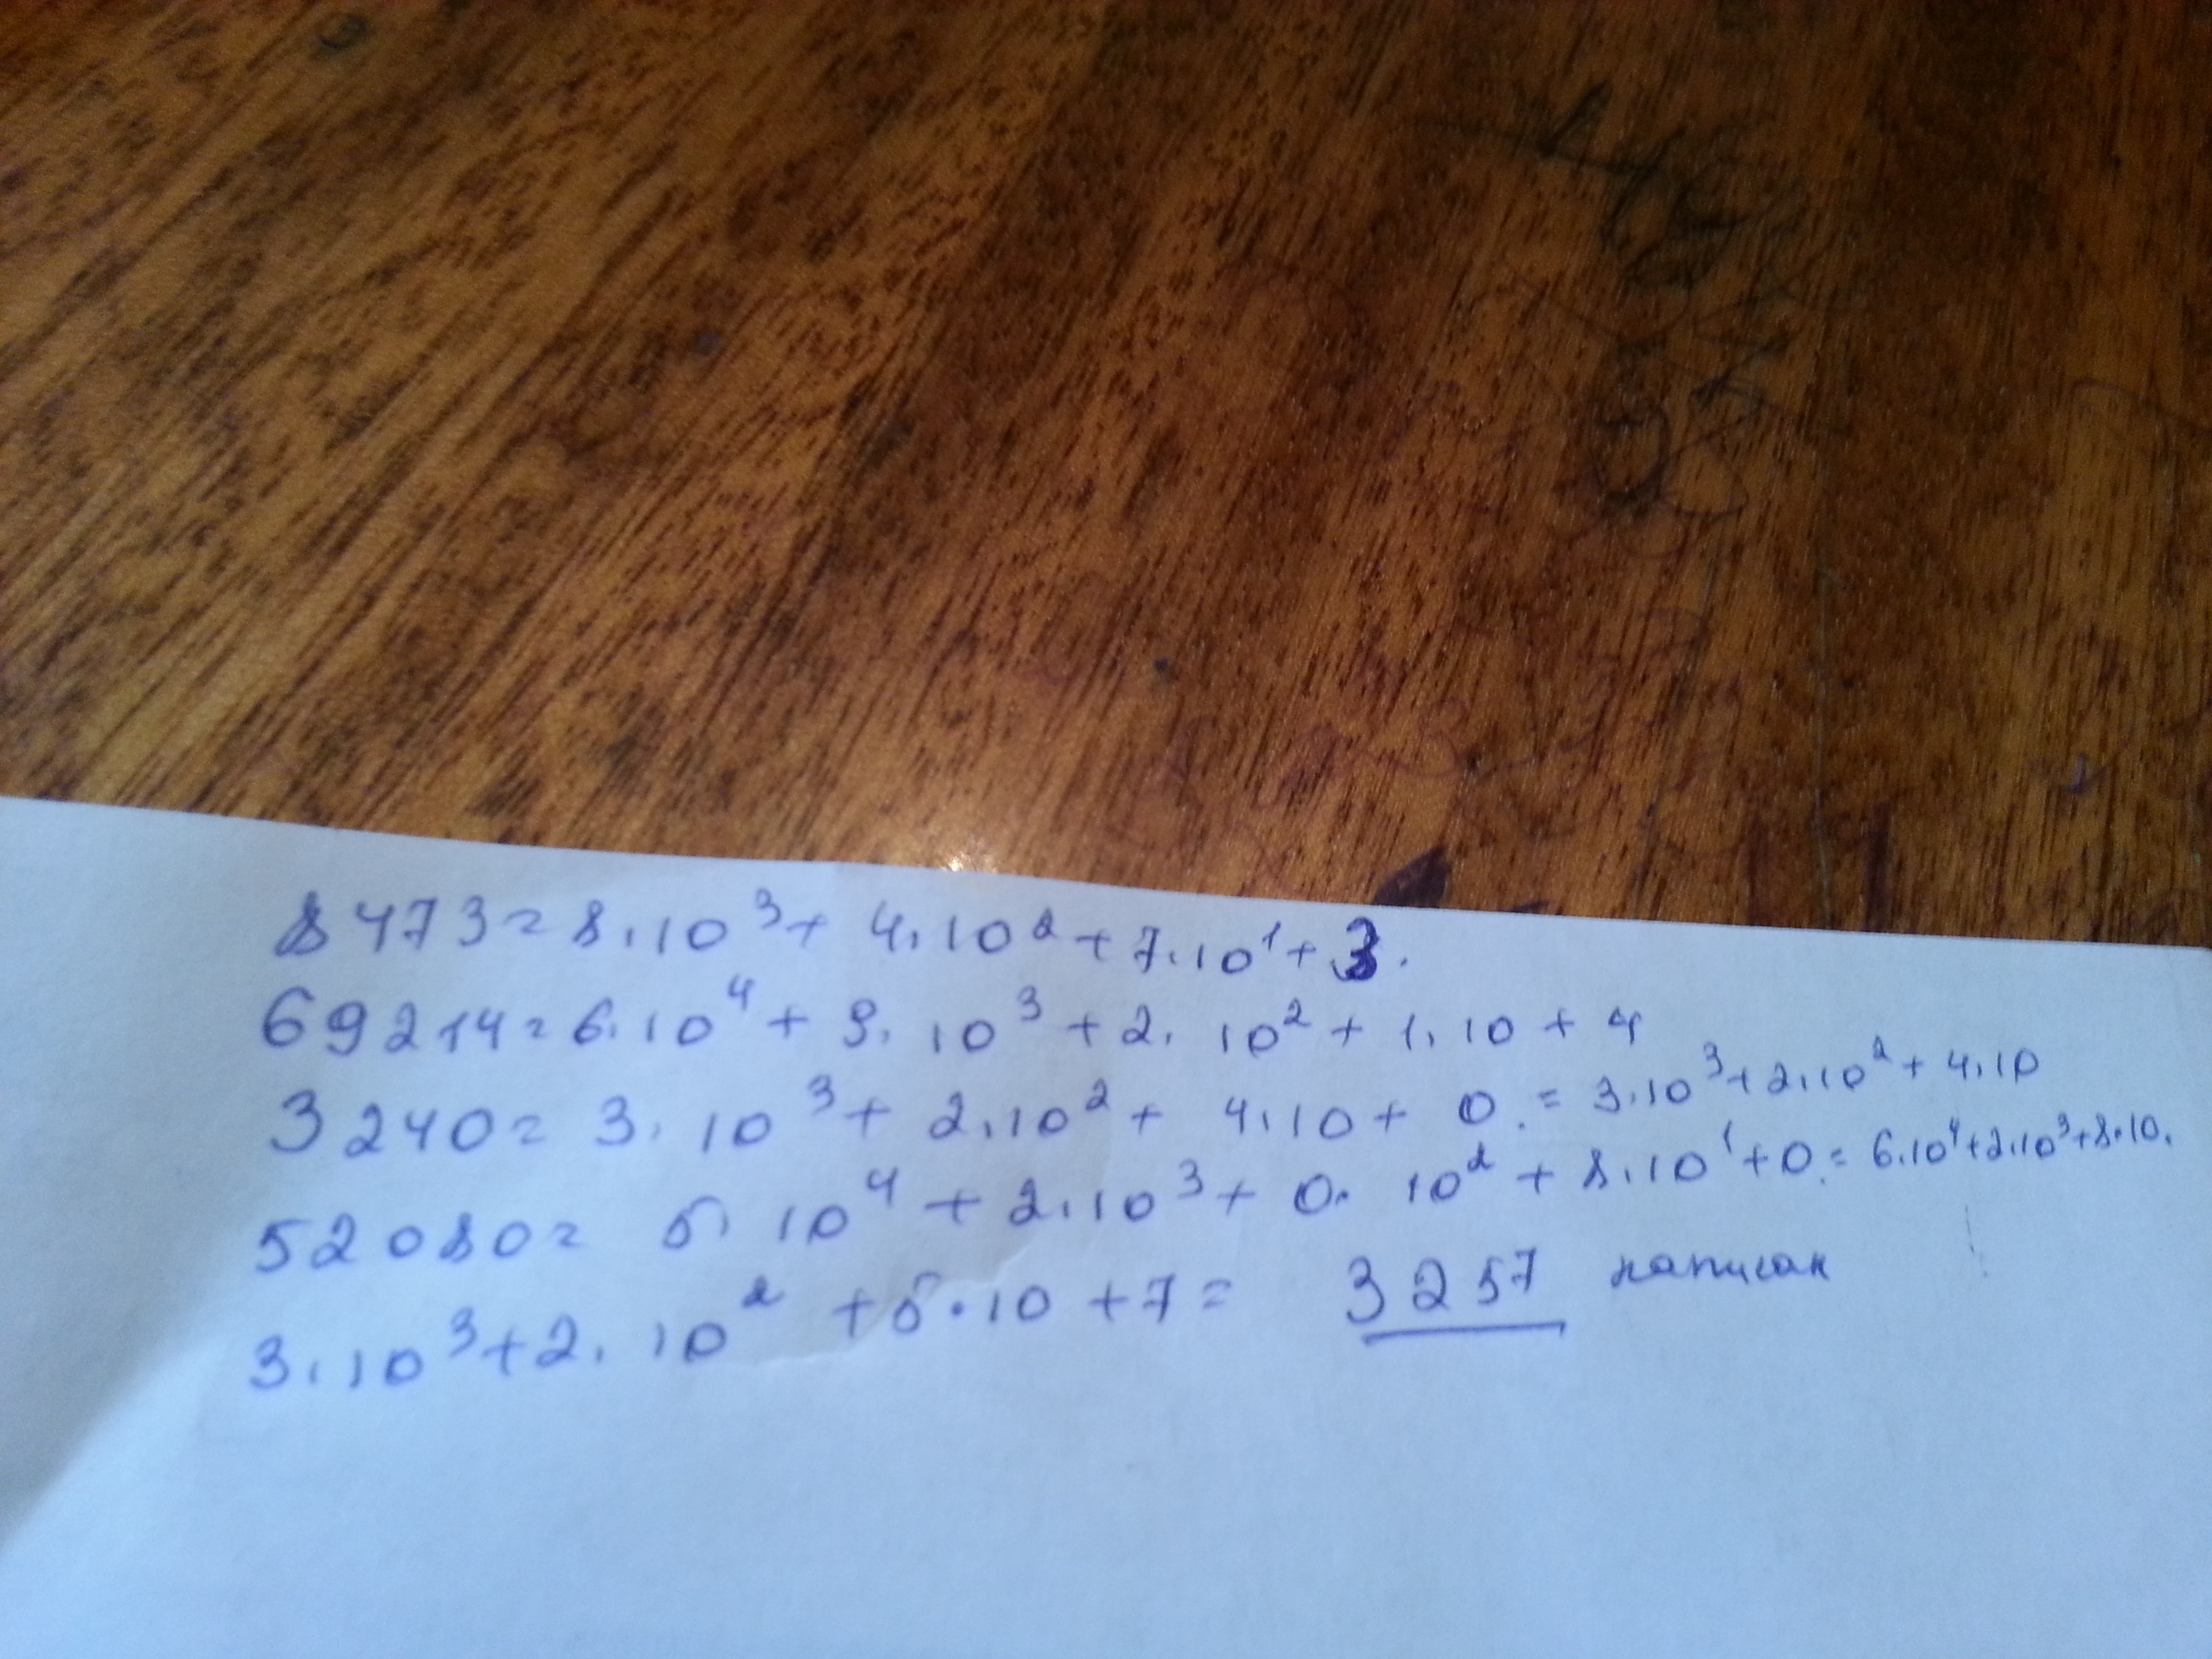 8473=8·10³+4·10²+7·10¹+3.
69214=6·10⁴+9·10³+2·10²+1·10+4
3240=3·10³+2·10²+4·10+0.=3·10³+2·10²+4·10
52080=5·10⁴+2·10³+0·10²+8·10¹+0.=6·10⁴+2·10³+8·10.
3·10³+2·10²+5·10+7=3257 написан